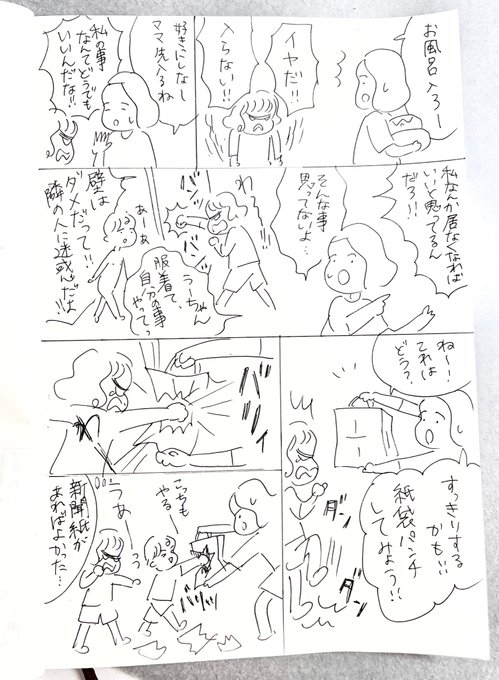 お風呂入ろー
イヤだ!!
入らない!!
好きにしなし
ママ先入るね
私の事
なんてどうでも
いいんだな!!
私なんか居なくなれば
いいと思ってるん
だろ!!
そんな事
思ってないよ…
わ
バ
バ
うーちゃん
服着て、
自分の事
やって?
あーあ
壁は
ダメだって!!
隣の人に迷惑だよ!!
ねー!
これは
どう?
すっきりする
かも!!
紙袋パンチ
してみよう!!
ダン
ダン
バババ
イ
こっちも
やるー
バリッ
うあー
新聞紙が
あればよかった…